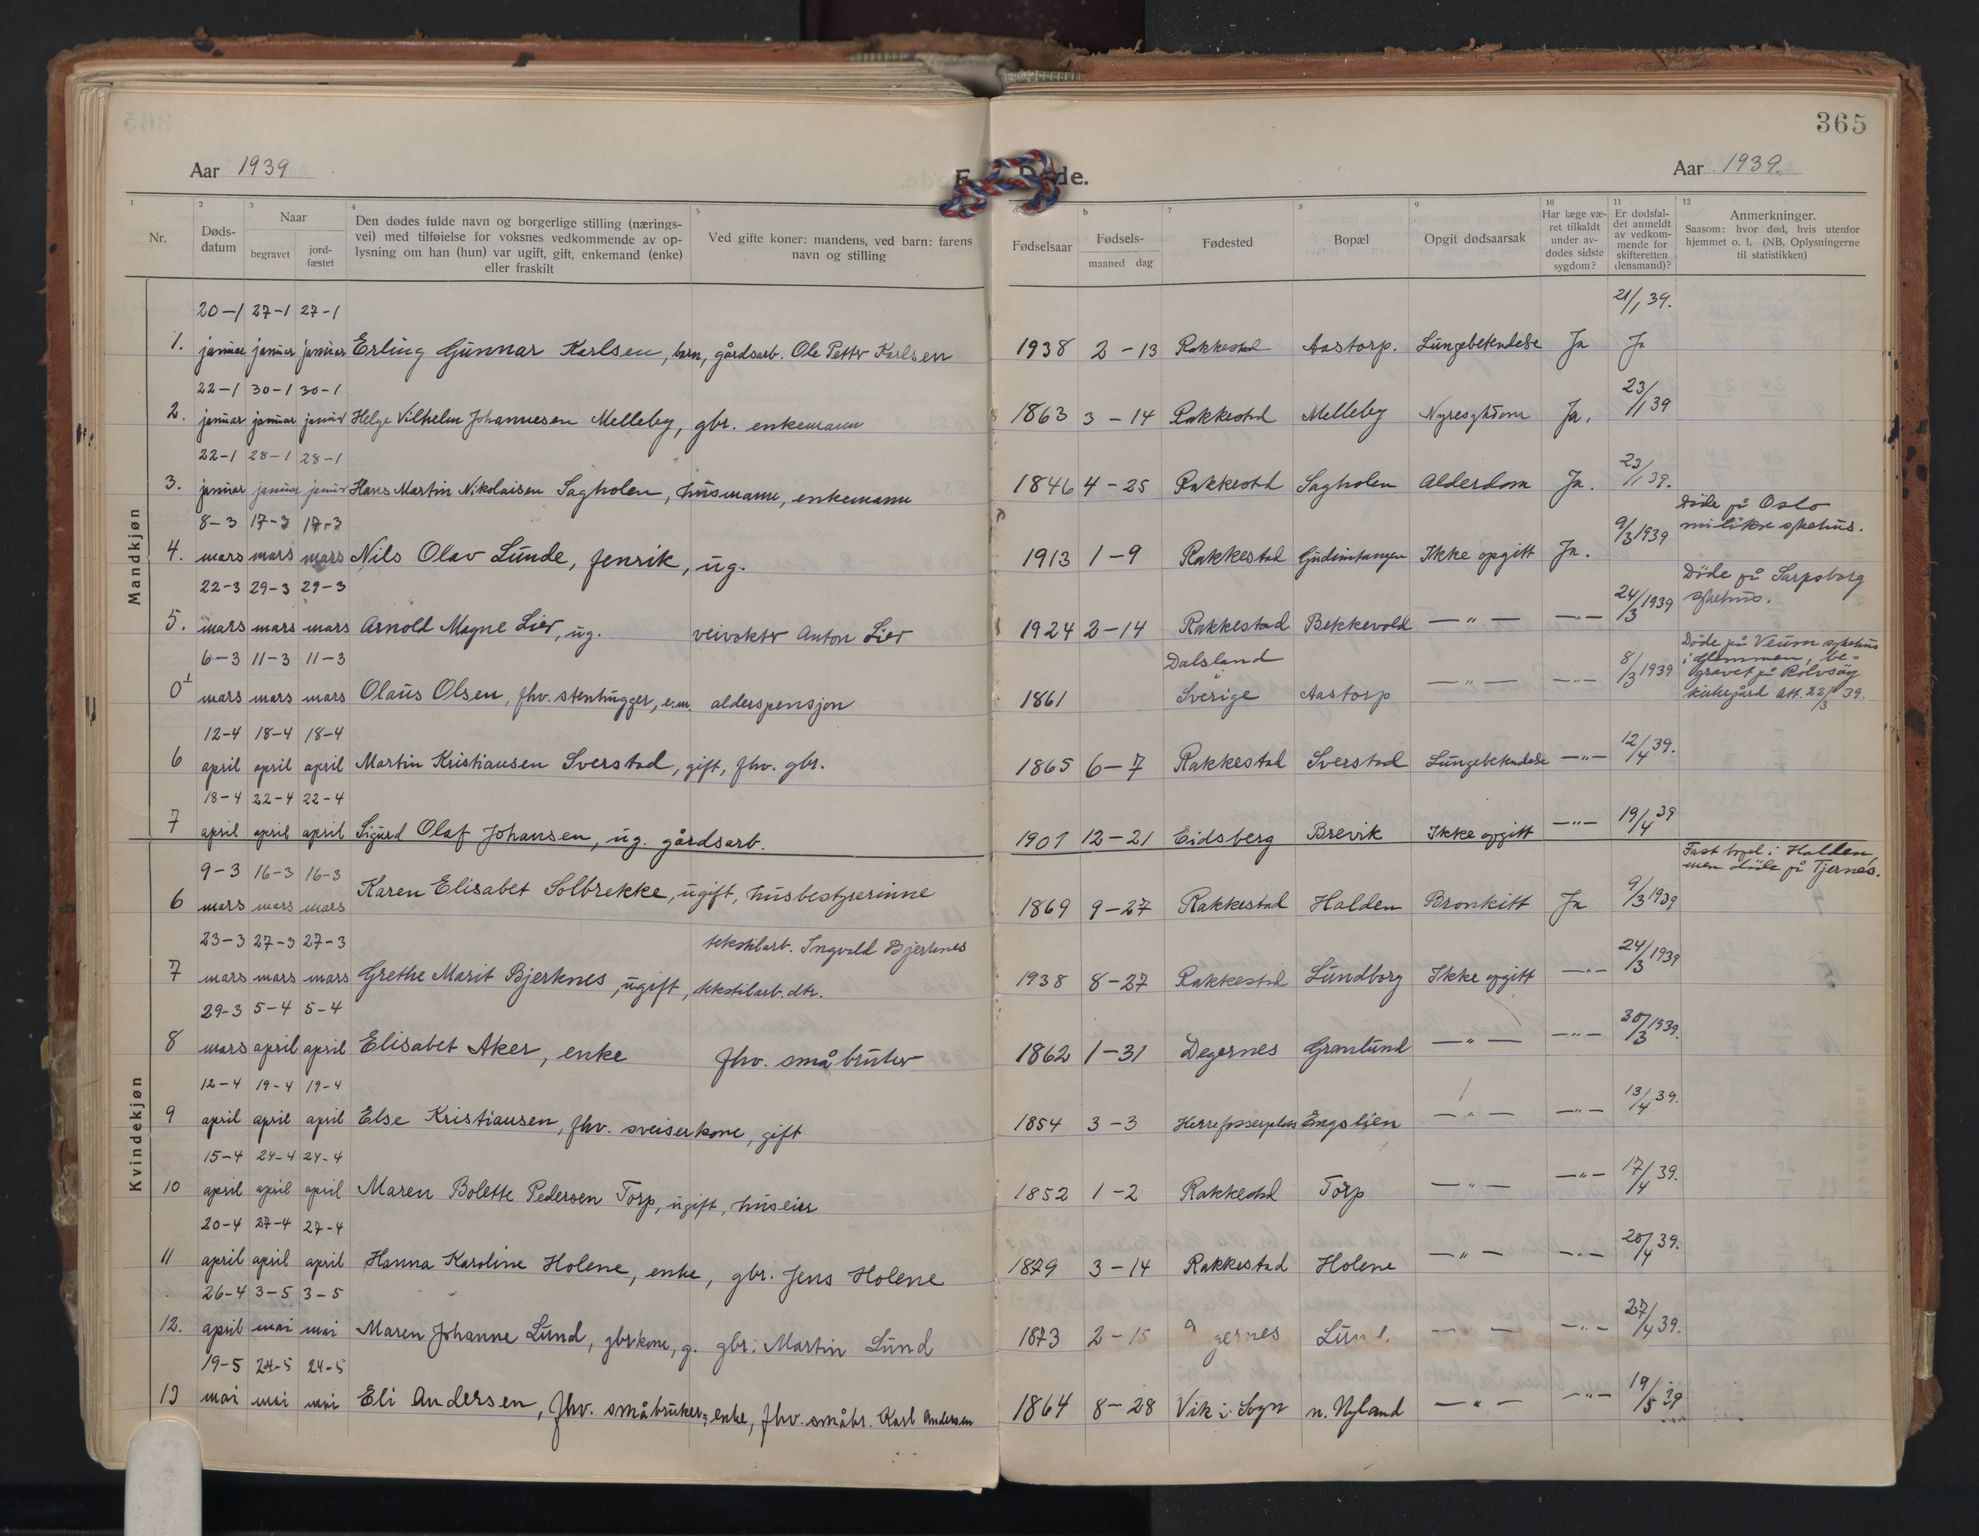 365
Aar 1939
Døde.
Aar 1939.
1 2 3 4 5 b 7 8 9 10 11 12
Nr.
Døds-
datum
Naar
begravet
jord-
fæstet
Den dødes fulde navn og borgerlige stilling (nærings-
vei) med tilføielse for voksnes vedkommende av op-
lysning om han (hun) var ugift, gift, enkemand (enke)
eller fraskilt
Ved gifte koner: mandens, ved barn: farens
navn og stilling
Fødselsaar
Fødsels-
maaned dag
Fødested
Bopæl
Opgit dødsaarsak
Har læge væ-
ret tilkaldt
under av-
dødes sidste
sygdom?
Er dødsfal-
det anmeldt
av vedkom-
mende for
skifteretten
(lensmand)?
Anmerkninger.
Saasom: hvor død, hvis utenfor
hjemmet o. l. (NB. Oplysningerne
til statistikken)
Mandkjøn
20-1 27-1 27-1 21/1 39.
1. januar januar januar Erling Gunnar Karlsen, barn, gårdsarb. Ole Petter Karlsen 1938 2-13 Rakkestad Aastorp. Lungebetendelse Ja Ja
22-1 30-1 30-1 23/1 39
2. januar januar januar Helge Vilhelm Johannesen Melleby, gbr. enkemann 1863 3-14 Rakkestad Melleby Nyresykdom Ja.
22-1 28-1 28-1 23/1 39.
3. januar januar januar Hans Martin Nikolaisen Sagholen, husmann, enkemann 1846 4-25 Rakkestad Sagholen Alderdom Ja.
8-3 17-3 17-3 9/3 1939 Døde på Oslo
militære sykehus.
4. mars mars mars Nils Olav Lunde, fenrik, ug. 1913 1-9 Rakkestad Gudimtangen Ikke opgitt Ja.
22-3 29-3 29-3 24/3 1939 Døde på Sarpsborg
sykehus.
5. mars mars mars Arnold Magne Lier, ug. veivokter Anton Lier 1924 2-14 Rakkestad Bekkevold —"— —"—
6-3 11-3 11-3 Dalsland 8/3 1939 Døde på Veum sykehus
i Glemmen, be-
gravet på Rolvsøy
kirkegård Att. 22/3 39.
0 mars mars mars Olaus Olsen, fhv. stenhugger, e.m. alderspensjon 1861 Sverige Aastorp —"— —"—
12-4 18-4 18-4 12/4 39.
6 april april april Martin Kristiansen Sverstad, gift, fhv. gbr. 1865 6-7 Rakkestad Sverstad Lungebetendelse —"—
18-4 22-4 22-4 19/4 39
7 april april april Sigurd Olaf Johansen, ug. gårdsarb. 1901 12-21 Eidsberg Brevik Ikke opgitt —"—
Kvindekjøn
9-3 16-3 16-3 9/3 1939 Fast bopel i Halden,
men døde på Tjernes.
6 mars mars mars Karen Elisabet Solbrekke, ugift, husbestyrerinne 1869 9-27 Rakkestad Halden Bronkitt Ja
23-3 27-3 27-3 tekstilarb. Ingvald Bjerknes 24/3 1939
7 mars mars mars Grethe Marit Bjerknes, ugift, tekstilarb. dtr. 1938 8-27 Rakkestad Lundborg Ikke opgitt —"—
29-3 5-4 5-4 30/3 1939.
8 mars april april Elisabet Aker, enke fhv. småbruker 1862 1-31 Degernes Granlund —"— —"—
12-4 19-4 19-4 13/4 39.
9 april april april Else Kristiansen, fhv. sveiserkone, gift 1854 3-3 Engslien —"— —"—
15-4 24-4 24-4 17/4 39.
10 april april april Maren Bolette Pedersen Torp, ugift, huseier 1852 1-2 Rakkestad Torp —"— —"—
20-4 27-4 27-4 20/4 39.
11 april april april Hanna Karoline Holene, enke, gbr. Jens Holene 1879 3-14 Rakkestad Holene —"— —"—
26-4 3-5 3-5 27/4 39.
12. april mai mai Maren Johanne Lund, gbrkone, g. gbr. Martin Lund 1873 2-15 Lund. — — —"—
19-5 24-5 24-5 19/5 39
13 mai mai mai Eli Andersen, fhv. småbruker, enke, fhv. småbr. Karl Andersen 1864 8-28 Vik i Sogn n. Nyland —"— —"—